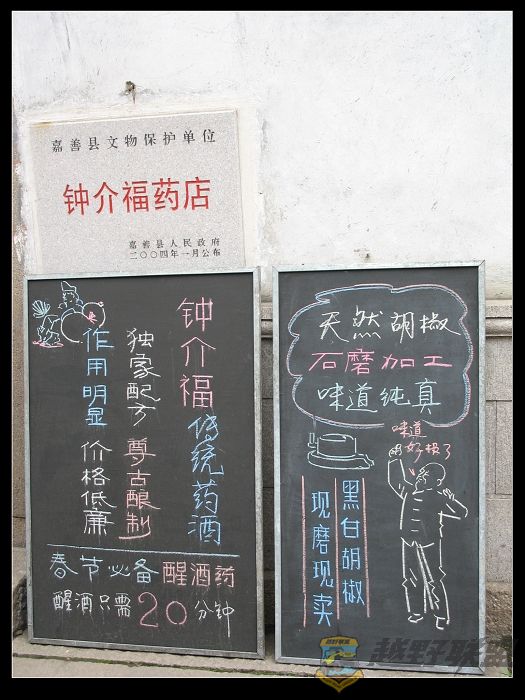 嘉善县文物保护单位
钟介福药店
嘉善县人民政府
二〇〇四年一月公布
钟介福传统药酒
独家配方 尊古酿制
作用明显 价格低廉
春节必备醒酒药
醒酒只需20分钟
天然胡椒
石磨加工
味道纯真
味道
好极了
黑白胡椒
现磨现卖
越野联盟